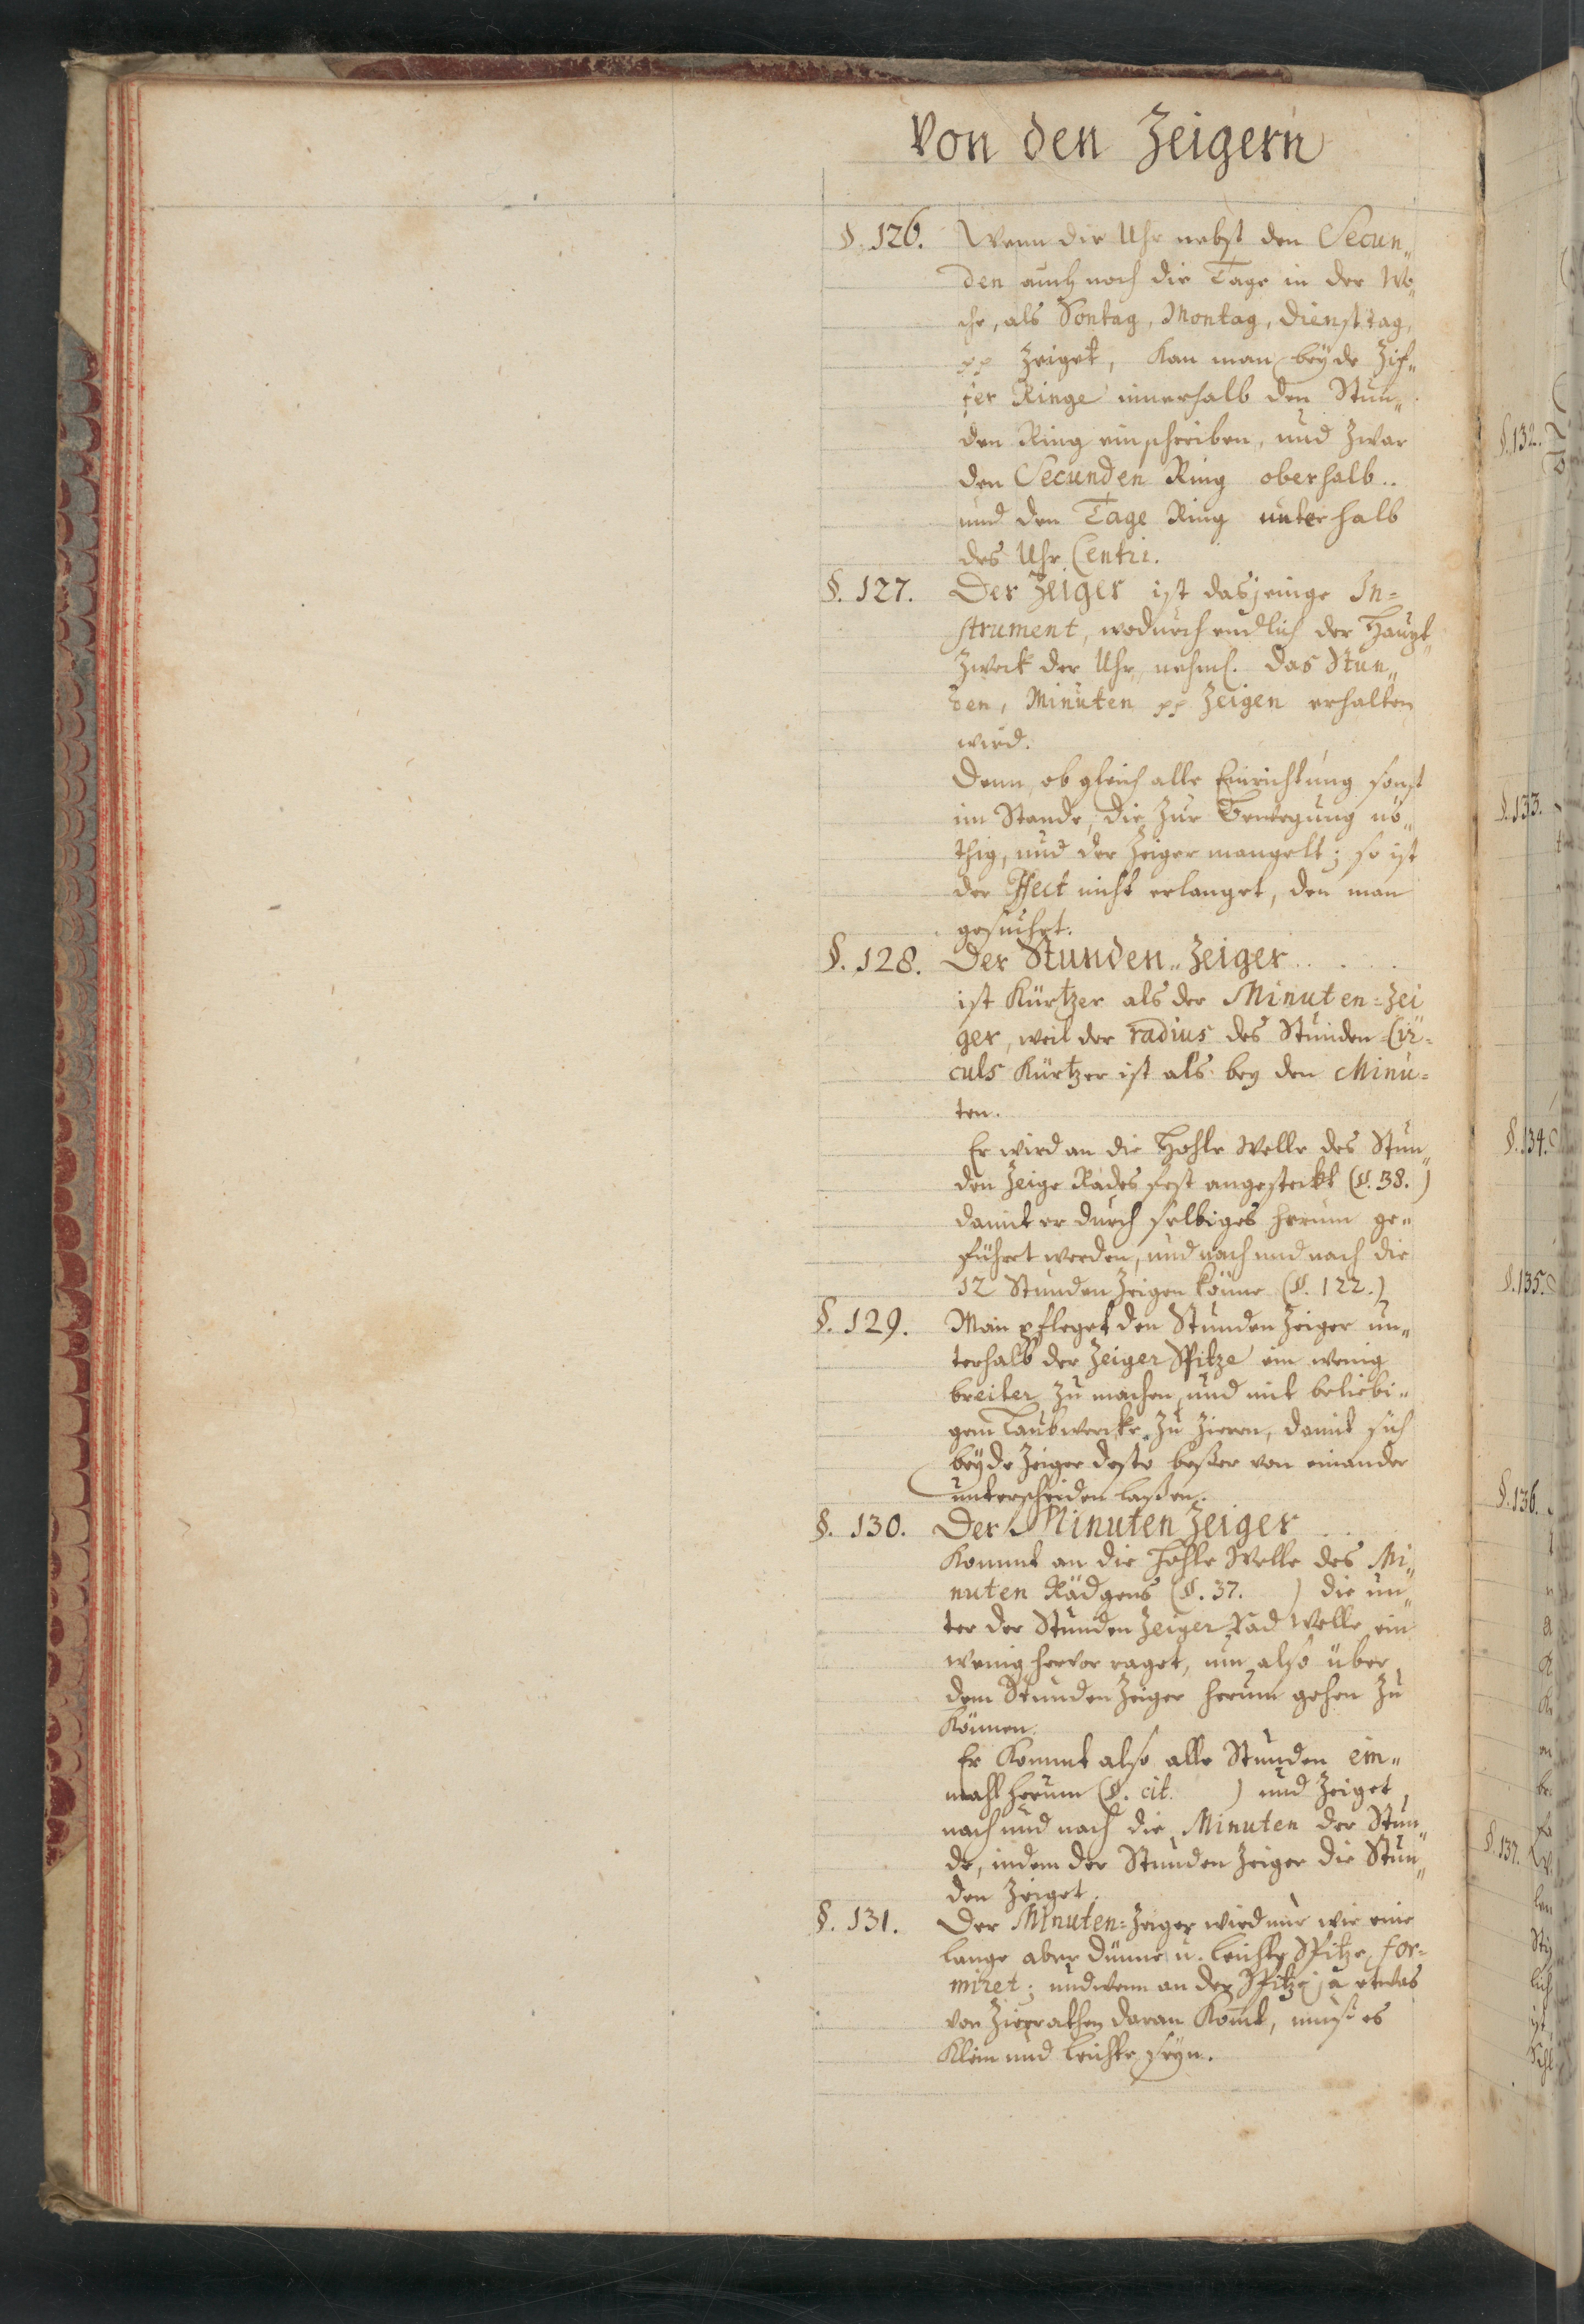 Von den Zeigern
§. 126. Wenn die Uhr nebst den Secun„
den auch noch die Tage in der Wo„
che, als Sontag, Montag, Dienstag,
pp zeiget, kan man beyde Zif„
fer Ringe innerhalb den Stun„
den Ring einschreiben, und zwar
den Secunden Ring oberhalb..
und den Tage Ring unterhalb
des Uhr Centri.
§. 127. Der Zeiger ist dasjenige In=
strument, wodurch endlich der Haupt„
Zweck der Uhr, nehml. das Stun„
den, Minuten pp Zeigen erhalten
wird.
Denn, ob gleich alle Einrichtung sonst
im Stande, die zur Bewegung nö„
thig, und der Zeiger mangelt; so ist
der Effect nicht erlanget, den man
gesuchet.
§. 128. Der Stunden„Zeiger . . . .
ist Kürtzer als der Minuten=Zei„
ger, weil der radius des Stunden=Cir=
culs Kürtzer ist als bey den Minu=
ten.
Er wird an die Hohle Welle des Stun„
den Zeige Rades fest angesteckt (§. 38.)
damit er durch selbiges herum ge„
führt werden, und nach und nach die
12 Stunden Zeigen könne (§. 122.)
§. 129. Man pfleget den Stunden Zeiger un„
terhalb der Zeiger Spitze ein wenig
breiter zu machen, und mit beliebi„
gem Laubwercke zu Zieren, damit sich
beyde Zeiger desto beßer von einander
unterscheiden laßen.
§. 130. Der Minuten Zeiger . .
Kommt an die Hohle Welle des Mi„
nuten Rädgens (§. 37. ) die un„
ter der Stunden Zeiger Rad Welle ein
wenig hervor raget, um also über
dem Stunden Zeiger herum gehen zu
Können.
Er Kommt also alle Stunden ein„
mahl herum (§. cit. ) und Zeiget,
nach und nach die Minuten der Stun„
de, indem der Stunden Zeiger die Stun„
den Zeiget.
§. 131. Der Minuten=Zeiger wird nur wie eine
lange aber dünne u. leichte Spitze for=
miret; und wenn an der Spitze ja etwas
von Zierrathen daran Komt, muß es
Klein und leichte seyn.
§. 132.
§. 133.
§. 134.
§. 135.
§. 136.
§. 137.